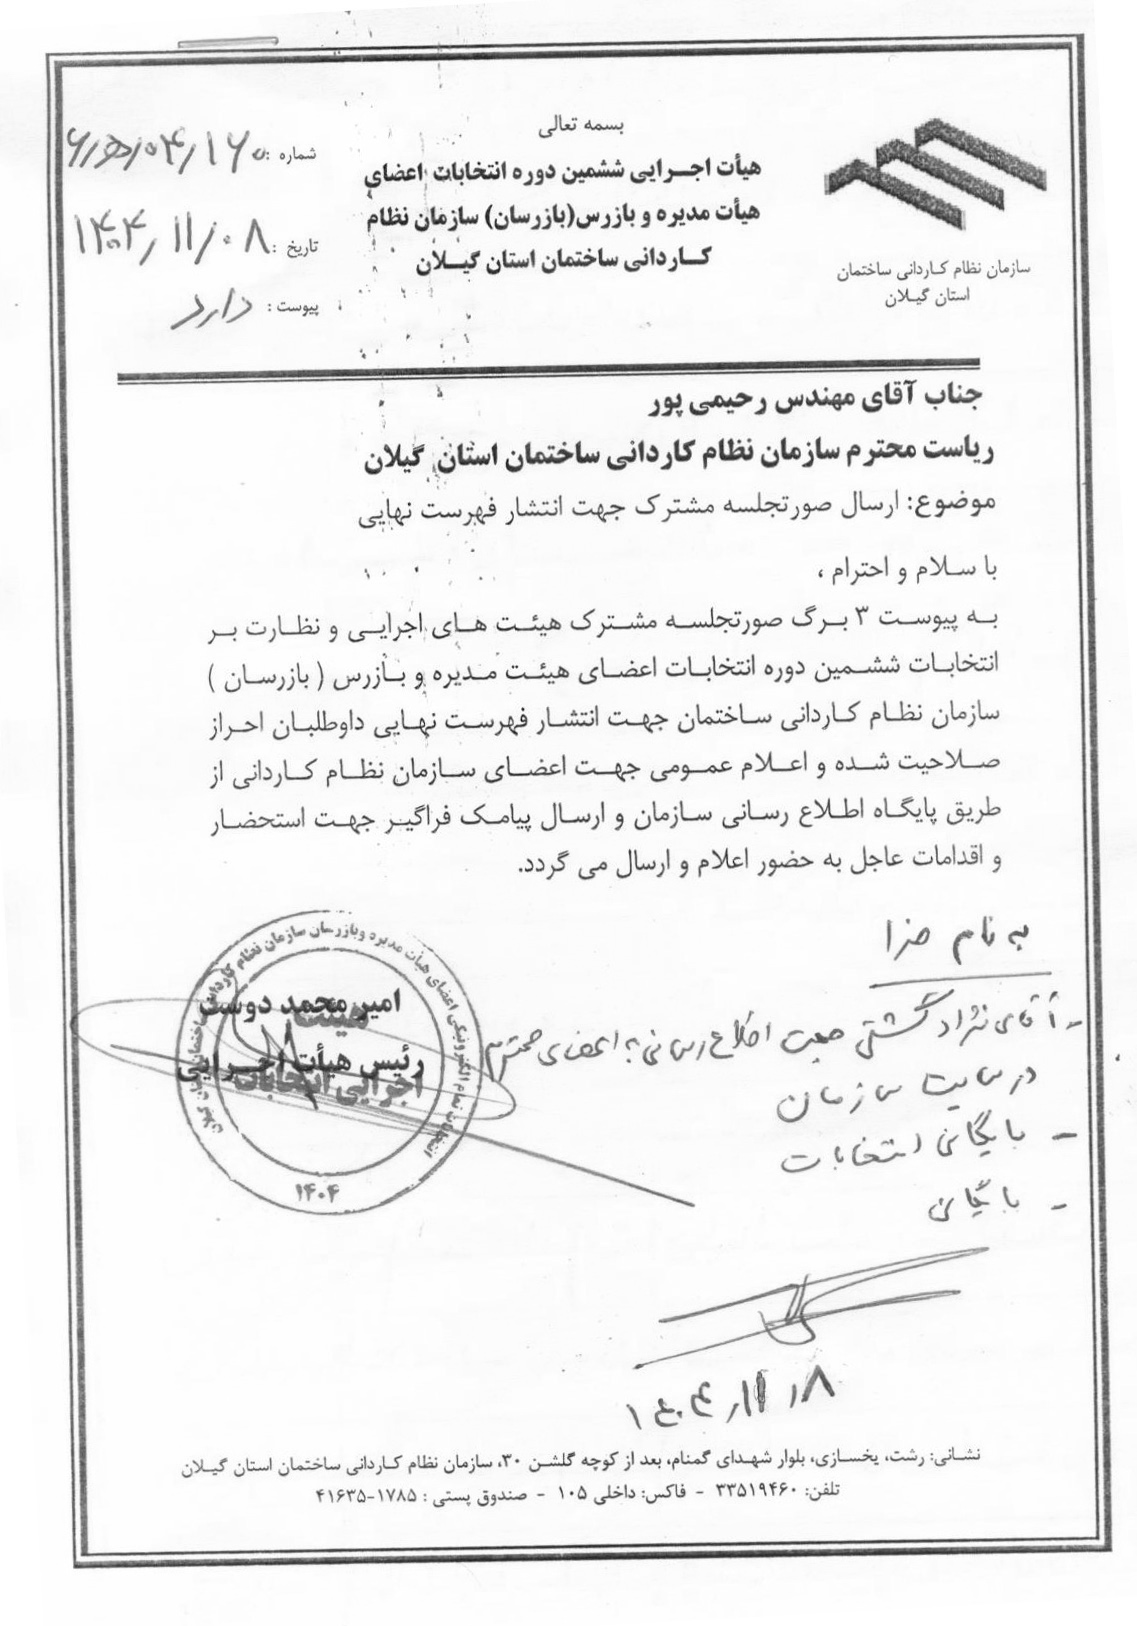 بسمه تعالی
هیأت اجـرایی ششمین دوره انتخابات اعضای
هیأت مدیره و بازرس(بازرسان) سازمان نظام
کـاردانی ساختمان استان گیـلان
سازمان نظام کـاردانی ساختمان
استان گیـلان
شماره :
تاریخ : ۱۴۰۴/۱۱/۰۸
پیوست : دارد
جناب آقای مهندس رحیمی پور
ریاست محترم سازمان نظام کاردانی ساختمان استان گیلان
موضوع: ارسال صورتجلسه مشترک جهت انتشار فهرست نهایی
با سـلام و احترام ،
بـه پیوست ۳ برگ صورتجلسـه مشـترک هیئـت هـای اجرایـی و نظـارت بـر
انتخابـات ششـمین دوره انتخابـات اعضـای هیئـت مـدیره و بـازرس ( بازرسـان )
سازمان نظـام کـاردانی سـاختمان جهـت انتشـار فهرسـت نهـایی داوطلبـان احـراز
صـلاحیت شـده و اعـلام عمـومی جهـت اعضـای سـازمان نظـام کـاردانی از
طریق پایگـاه اطـلاع رسـانی سـازمان و ارسـال پیامـک فراگیـر جهـت استحضـار
و اقدامات عاجل به حضور اعلام و ارسال می گردد.
امیر محمد دوست
رئیس هیأت اجـرایی
هیئت
اجرایی انتخابات
انتخابات تمام الکترونیکی اعضای هیأت مدیره وبازرسان سازمان نظام کاردانی ساختمان استان گیلان
۱۴۰۴
به نام خدا
- آقای نژاد گشتی جهت اطلاع رسانی به اعضای محترم
در سایت سازمان
- بایگانی انتخابات
- بایگانی
۱۴۰۴/۱۱/۸
نشانی: رشت، یخسازی، بلوار شهدای گمنام، بعد از کوچه گلشن ۳۰، سازمان نظام کـاردانی ساختمان استان گیـلان
تلفن: ۳۳۵۱۹۴۶۰ - فاکس: داخلی ۱۰۵ - صندوق پستی : ۱۷۸۵-۴۱۶۳۵